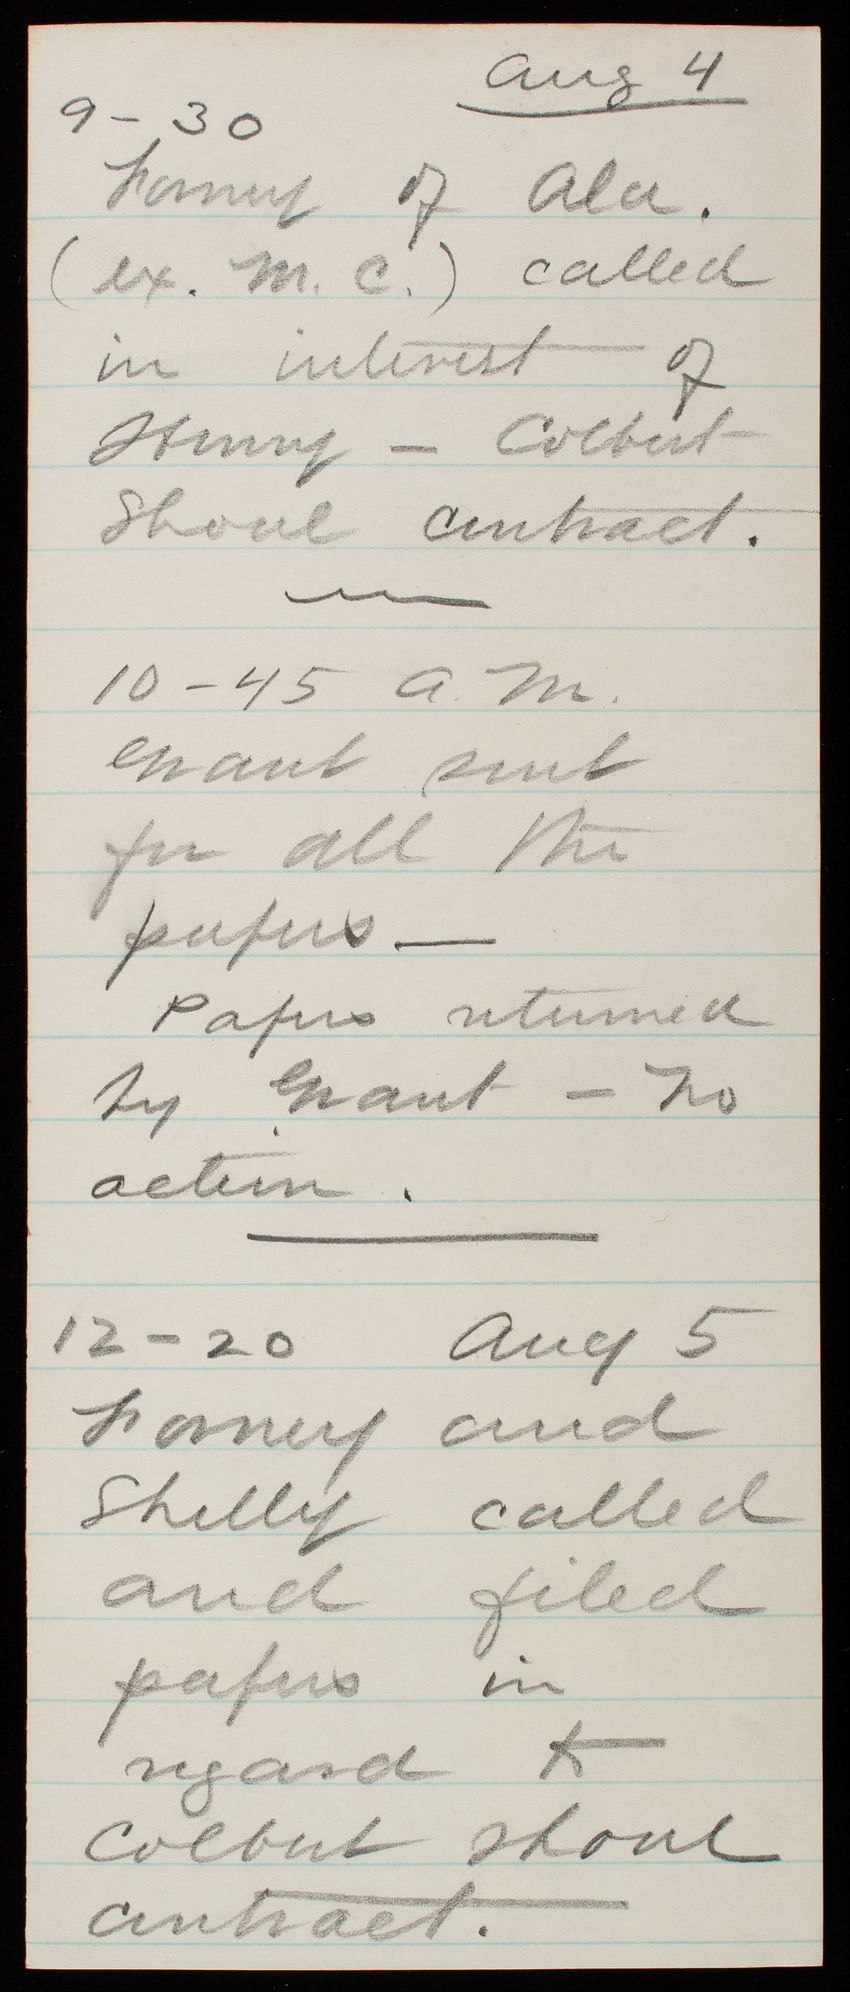 Aug 4
9-30
Forney of Ala.
(ex. M. C.) called
in interest of
– Colbert
Shoal contract.
10-45 A. M.
Grant sent
for all the
papers —
Papers returned
by Grant – No
action.
12-20 Aug 5
Forney and
Shelly called
and filed
papers in
regard to
Colbert shoal
contract.